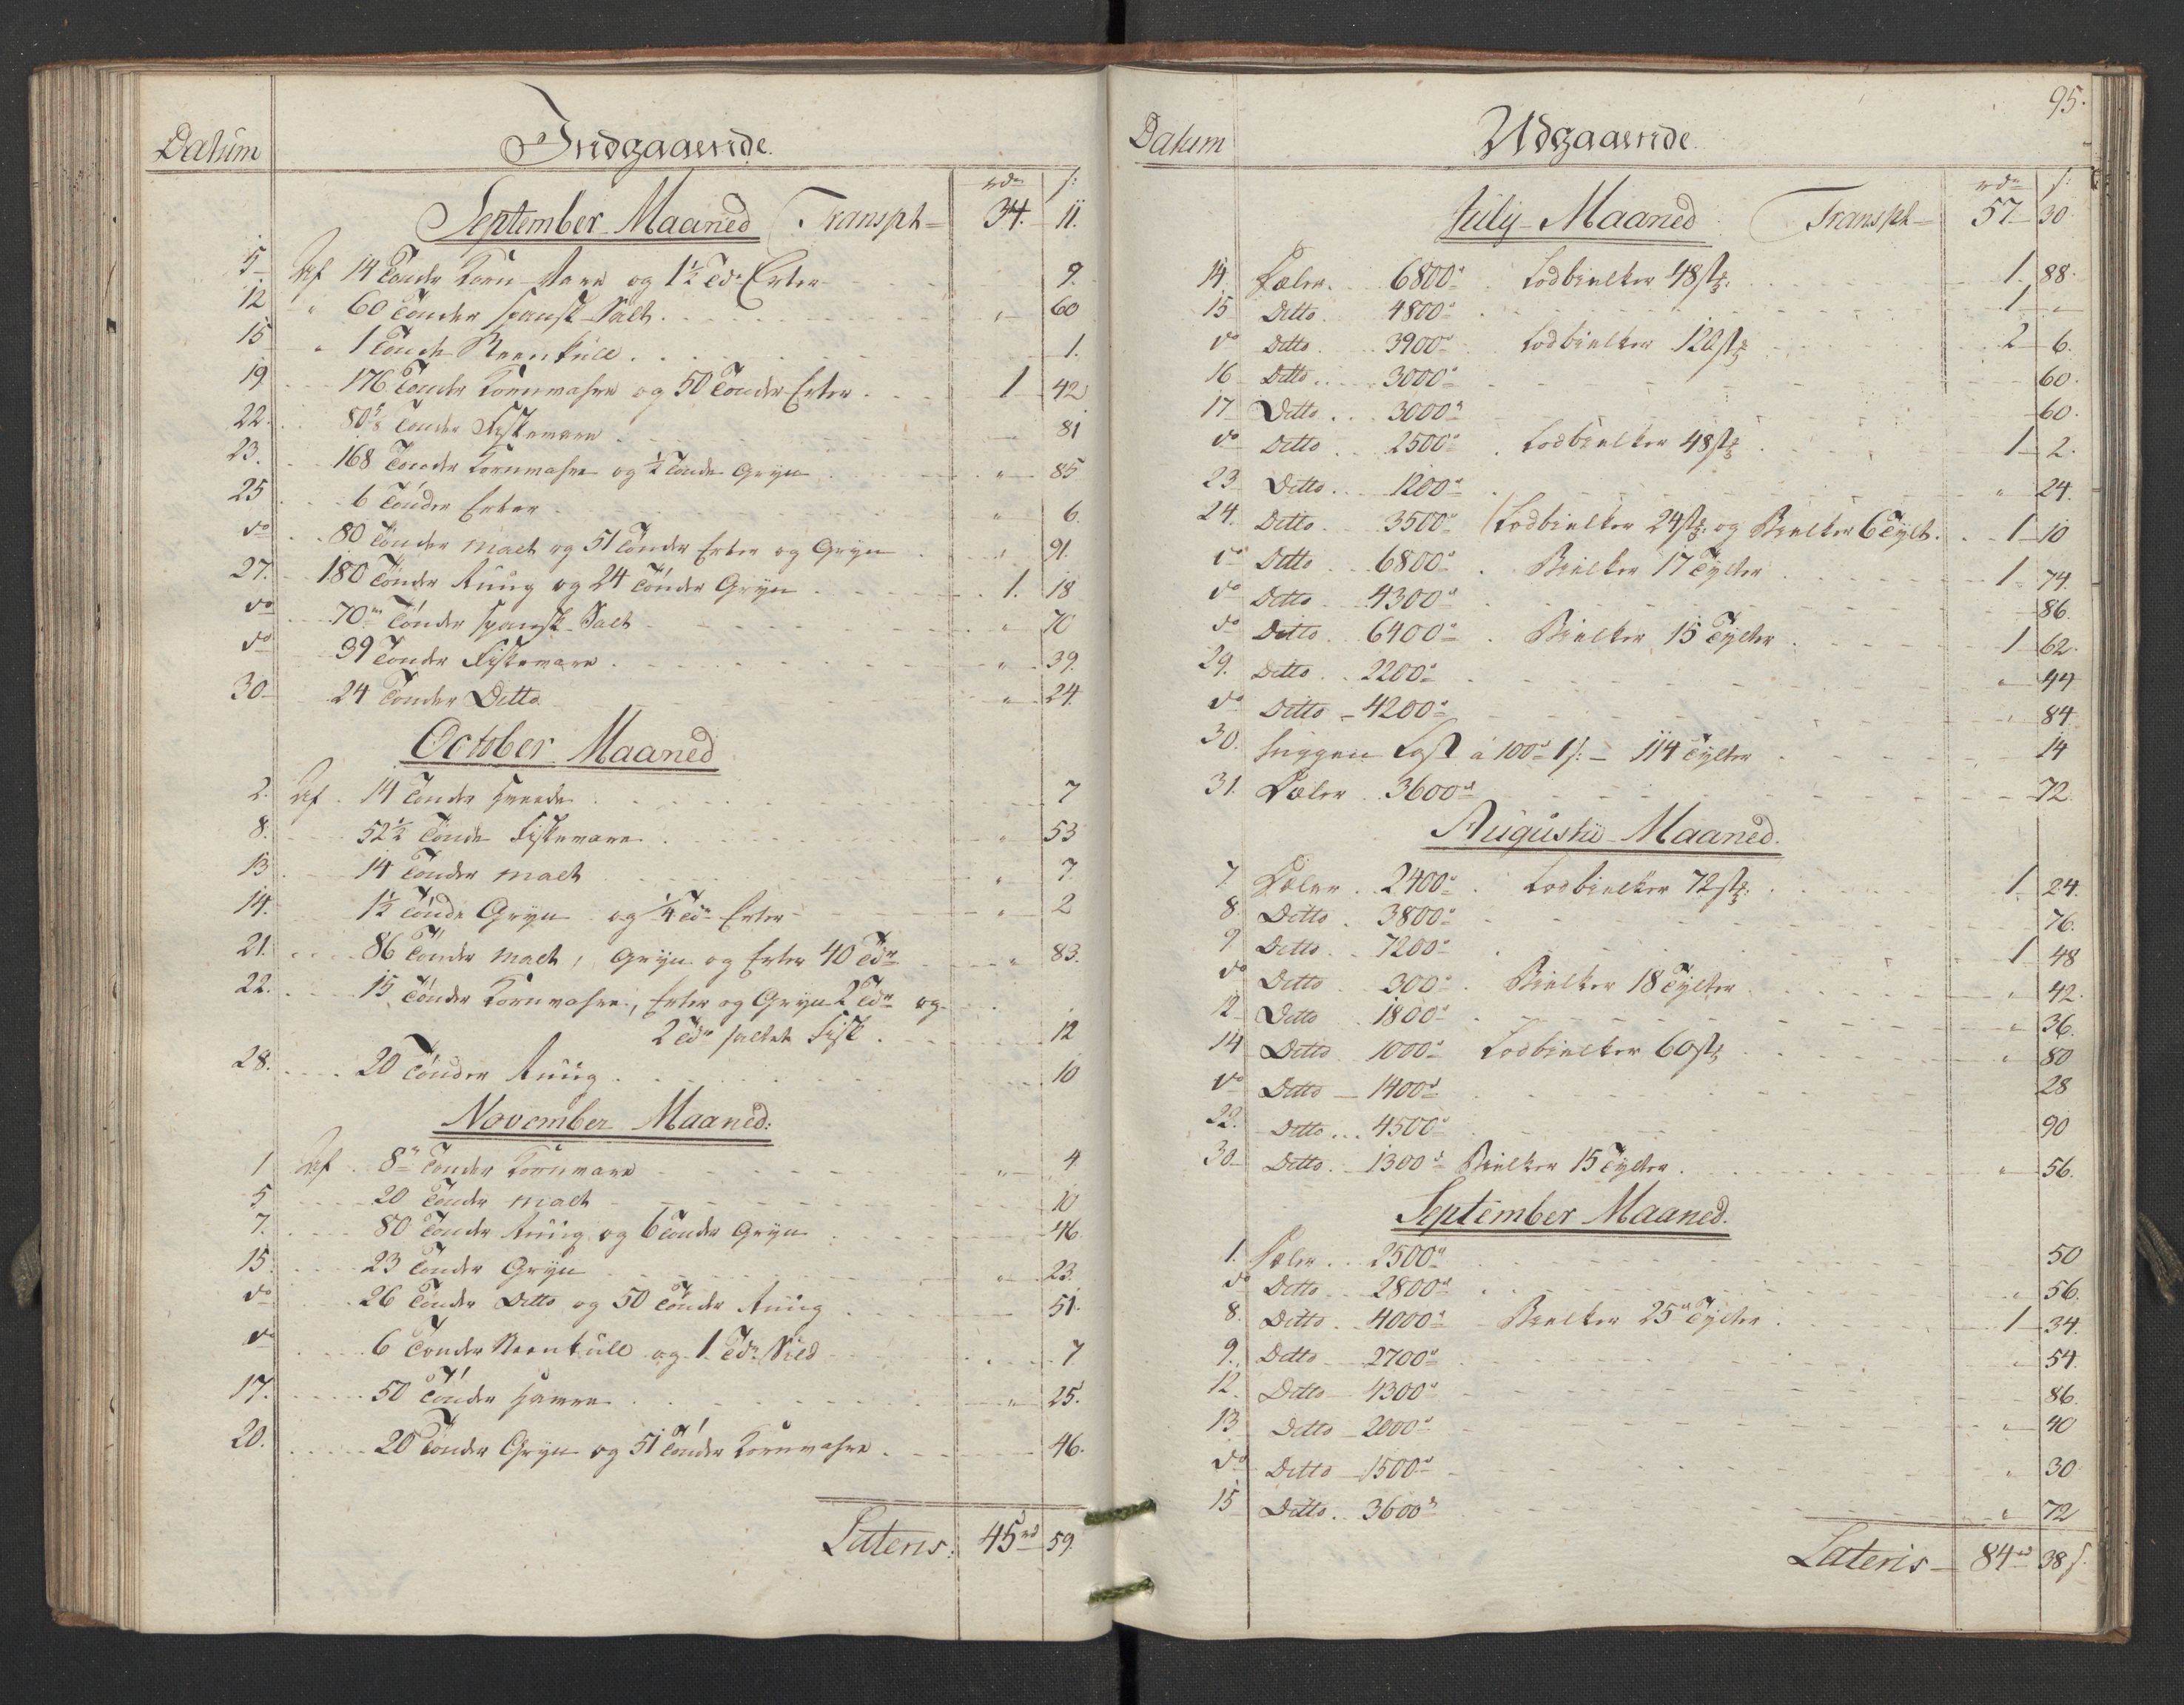 Datum
Indgaaende.
rdr
s:
September Maaned Transpt= 34. 11.
5 Af 14 Tønder Korn Vare og 1½ Tdr Erter 9.
12 " 60 Tønder spansk Salt. " 60
15 " 1 Tønde Steenkull. 1.
19 176 Tønder Kornvahre og 50 Tønder Erter. 1 42
22. 80⅝ Tønder Fiskevare. 81
23. 168 Tønder Kornvahre og ½ Tønde Gryn " 85
25 6 Tønder Erter " 6.
do 80 Tønder Malt og 51 Tønder Erter og Gryn " 91.
27. 180 Tønder Ruug og 24 Tønder Gryn 1. 18
do 70 Tønder spansk Salt " 70
do 39 Tønder Fiskevare. " 39.
30 24 Tønder Ditto " 24.
October Maaned
2. Af 14 Tønder Hvede 7
8. 52½ Tønde Fiskevare " 53
13 14 Tønder Malt " 7.
14. 1½ Tønde Gryn og ¼ Tdr Erter " 2
21. 86 Tønder Malt, Gryn og Erter 40 Tdr " 83.
22. 15 Tønder Kornvahre, Erter og Gryn 2 Tdr og
2 Tdr saltet Fisk. 12
28. 20 Tønder Ruug. 10
November Maaned:
1 Af 8 Tønder Kornvare " 4
5 20 Tønder Malt 10
7. 80 Tønder Ruug og 6 Tønder Gryn 46.
15. 23 Tønder Gryn " 23.
do 26 Tønder Ditto og 50 Tønder Ruug 51.
do 6 Tønder Steenkull og 1 Tdr Sild 7
17. 50 Tønder Havre " 25.
20. 20 Tønder Gryn og 51 Tønder Kornvahre. 46.
Lateris: 45rd 59.
95.
Datum
Udgaaende.
rdr
s:
July Maaned Transpt= 57 30
14. Dæler. 6800 Lodbielker 48 stk: 1 88.
15 Ditto 4800 1 "
do Ditto 3900 Lodbielker 120 stk 2 6.
16 Ditto 3000 60.
17 Ditto 3000 60.
do Ditto 2500 Lodbielker 48 stk 1 2.
23 Ditto 1200 " 24.
24. Ditto 3500 Lodbielker 24 stk: og Bielker 6 Tylt. 1 10
do Ditto 6800 Bielker 17 Tylter 1 74.
do Ditto 4300 86
do Ditto 6400 Bielker 15 Tylter 1 62.
29. Ditto 2200 " 44
do Ditto 4200 " 84.
30. Huggen Last a 100 1 s: 114 Tylter 14
31. Dæler 3600 72.
Augusti Maaned.
7. Dæler 2400 Lodbielker 72 stk: 1 24.
8. Ditto 3800 76.
9. Ditto 7200 1 48
do Ditto 300 Bielker 18 Tylter " 42.
12 Ditto 1800 " 36.
14 Ditto 1000 Lodbielker 60 stk " 80
do Ditto 1400 28
22. Ditto 4500 90
30 Ditto 1300 Bielker 15 Tylter. " 56.
September Maaned.
1. Dæler 2500 50
do Ditto 2800 " 56.
8. Ditto 4000 Bielker 25 Tylter 1 34.
9. Ditto 2700 " 54.
12. Ditto 4300 86.
13 Ditto 2000 " 40
do Ditto 1500 " 30
15 Ditto 3600 " 72
Lateris 84rd 38 s